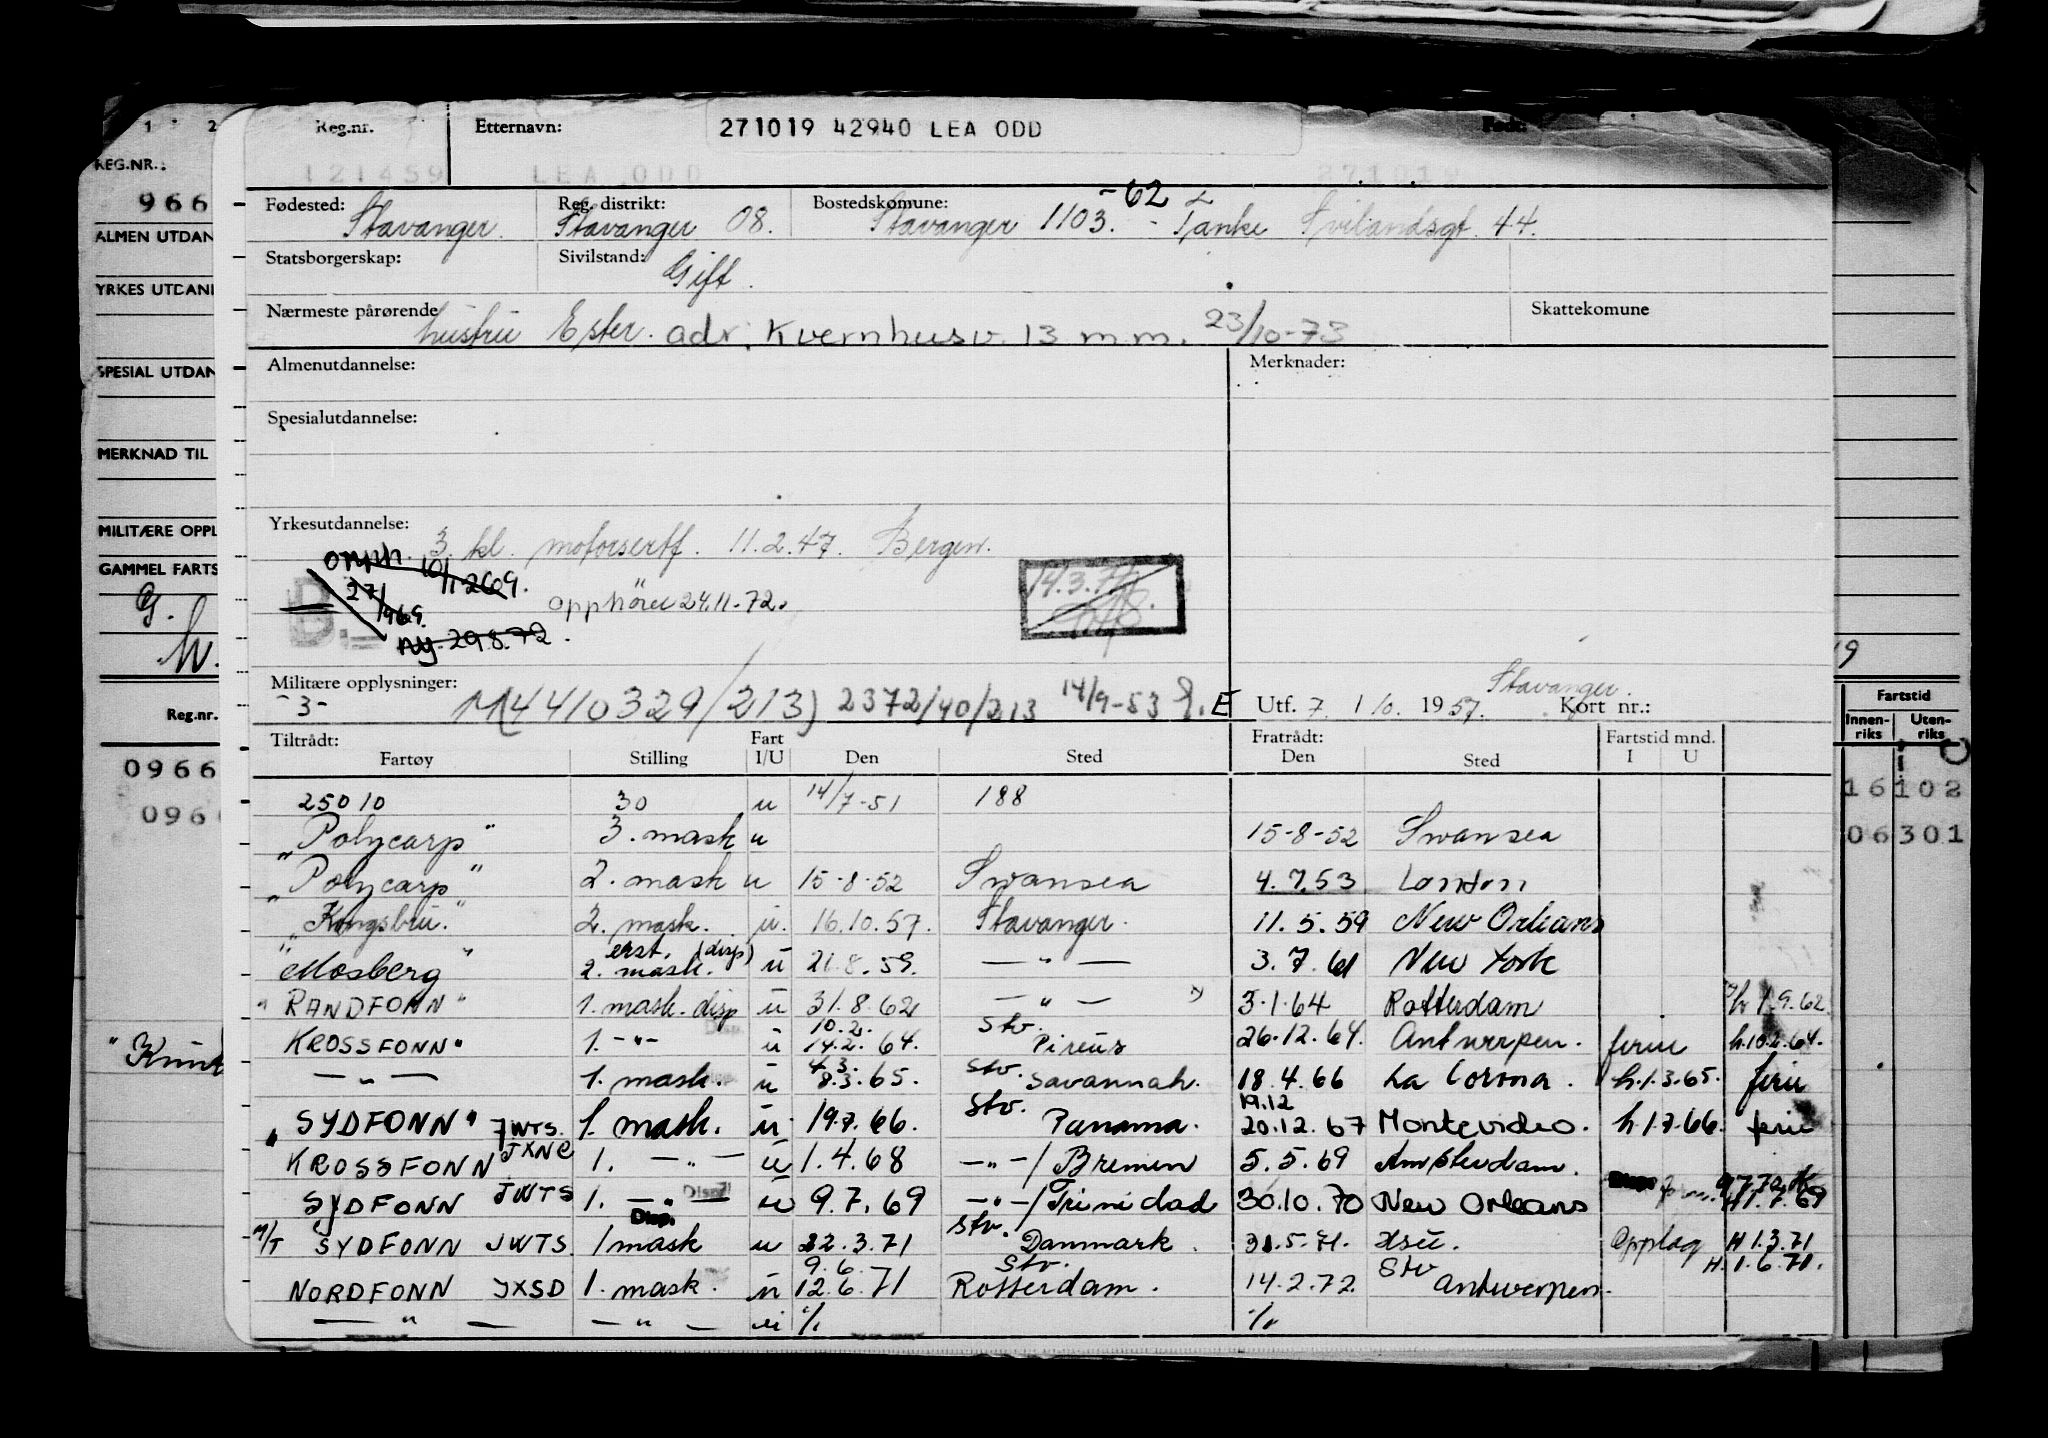 1 2
REG.NR.:
966
ALMEN UTDAN
YRKES UTDANI
SPESIAL UTDAN
MERKNAD TIL
MILITÆRE OPPL
GAMMEL FARTS
G.
Reg.nr.
0966
096
Reg.nr. Etternavn: 271019 42940 LEA ODD Født:
121459 LEA ODD 271019
-62
Fødested: Stavanger. Reg. distrikt: Stavanger 08. Bostedskomune: Stavanger 1103. - Tanke Svilandsgt. 44.
Statsborgerskap: Sivilstand: Gift.
Nærmeste pårørende hustru Ester. adr. Kvernhusv. 13 m.m. 23/10-73 Skattekomune
Almenutdannelse: Merknader:
Spesialutdannelse:
Yrkesutdannelse: 3 kl. motorsertf. 11.2.47. Bergen.
opphører 24.11.72.
ny 29.8.72.
Militære opplysninger: -3- M(4410329/213) 2372/40/213 14/9-53 E Utf. 7. 1/0. 1957. Stavanger. Kort nr.:
Tiltrådt: Fart Fratrådt: Fartstid mnd.
Fartøy Stilling I/U Den Sted Den Sted I U
25010 30 u 14/7-51 188
"Polycarp" 3. mask u 15-8-52 Swansea
"Polycarp" 2. mask u 15-8-52 Swansea 4.7.53 London
"Kongsbru." 2. mask. u. 16.10.57. Stavanger. 11.5.59 New Orleans
erst. (disp)
"Mosberg" 2. mask. u 21.8.59. — " — 3.7.61 New York
"RANDFONN" 1. mask. disp u 31.8.62 — " — x) 3.1.64 Rotterdam x) h 1.9.62
10.2. Stv.
KROSSFONN" 1. -"- u 14.2.64. Pireus 26.12.64. Antwerpen. ferie h.10.2.64.
4.3. Stv.
— " — 1. mask. u 8.3.65. Savannah. 18.4.66 La Corona. h.1.3.65. ferie
Stv. 19.12
"SYDFONN" JWTS. 1. mask. u 19.7.66. Panama. 20.12.67 Montevideo. h.1.7.66. ferie
KROSSFONN JXNC 1. — " — u 1.4.68 — " —/ Bremen 5.5.69 Amsterdam.
SYDFONN JWTS 1. — " — u 9.7.69 — " —/ Trinidad 30.10.70 New Orleans H 1.7.69
Disp. Stv.
M/T SYDFONN JWTS 1 mask u 22.3.71 Danmark. 31.5.71. Opplag H 1.3.71
9.6. Stv. Stv H. 1.6.71.
NORDFONN JXSD 1. mask. u 12.6.71 Rotterdam. 14.2.72. Antwerpen.
— " — — " — u %. %.
9
Fartstid
Innen-riks Uten-riks
16 102
06 301